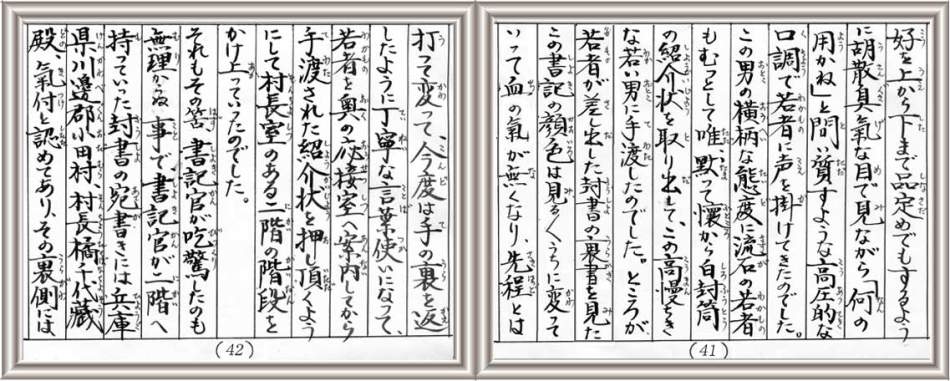 好を上から下まで品定めでもするよう
に胡散臭気な目で見ながら「何の
用かね」と問い質すような高圧的な
口調で若者に声を掛けてきたのでした。
この男の横柄な態度に流石の若者
もむっとして唯、黙って懐から白封筒
の紹介状を取り出して、この高慢ちき
な若い男に手渡したのでした。ところが、
若者が差し出した封書の裏書を見た
この書記の顔色は見る〱うちに変って
いって血の氣が無くなり、先程とは
(41)
打って変って、今度は手の裏を返
したように丁寧な言葉使いになって、
若者を奥の応接室へ案内してから
手渡された紹介状を押し頂くよう
にして村長室のある二階の階段を
かけ上っていったのでした。
それもその筈、書記官が吃驚したのも
無理からぬ事で、書記官が二階へ
持っていった封書の宛書きには兵庫
県川邊郡小田村、村長橘千代藏
殿、氣付と認めてあり、その裏側には、
(42)